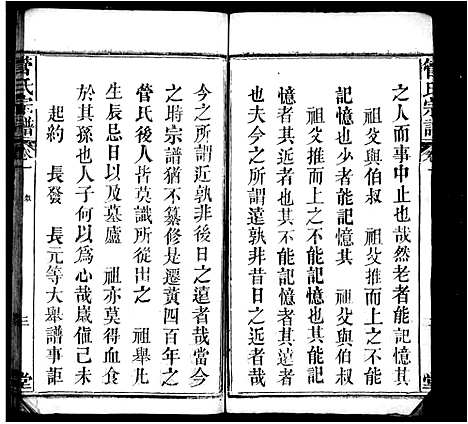 之人而事中止也哉然老者能記憶其
祖父與伯叔　祖父推而上之不能
記憶也少者能記憶其　祖父與伯叔
祖父推而上之不能記憶也少者能記憶其
祖父推而上之不能記憶者其幾何
憶者甚其幾而上之不能記
也夫今之所謂遠孰非昔日之近者哉
今之所謂近孰非後日之遠者哉當今
之時宗譜猶不纂修是遷黃四百年之
管氏後人皆莫識所從出之　祖舉凡
生辰忌日以及墓廬　祖亦莫得血食
於其孫也人子何以為心哉歲值己未
起約　長發　長元等大舉譜事詎
管氏宗譜
卷一
三
堂
管氏宗譜
卷一
堂